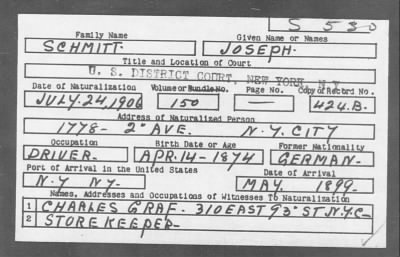 S 530
Family Name Given Name or Names
SCHMITT. JOSEPH.
Title and Location of Court
U. S. DISTRICT COURT, NEW YORK, N.Y.
Date of Naturalization Volume or Bundle No. Page No. Copy of Record No.
JULY. 24, 1906 150 — 424. B.
Address of Naturalized Person
1778- 2º AVE. N.Y. CITY
Occupation Birth Date or Age Former Nationality
DRIVER- APR. 14- 1874 GERMAN-
Port of Arrival in the United States Date of Arrival
N.Y NY- MAY. 1899-
Names, Addresses and Occupations of Witnesses To Naturalization
1 CHARLES GRAF. 310 EAST 93º ST. N.Y.C-
2 STORE KEEPER-